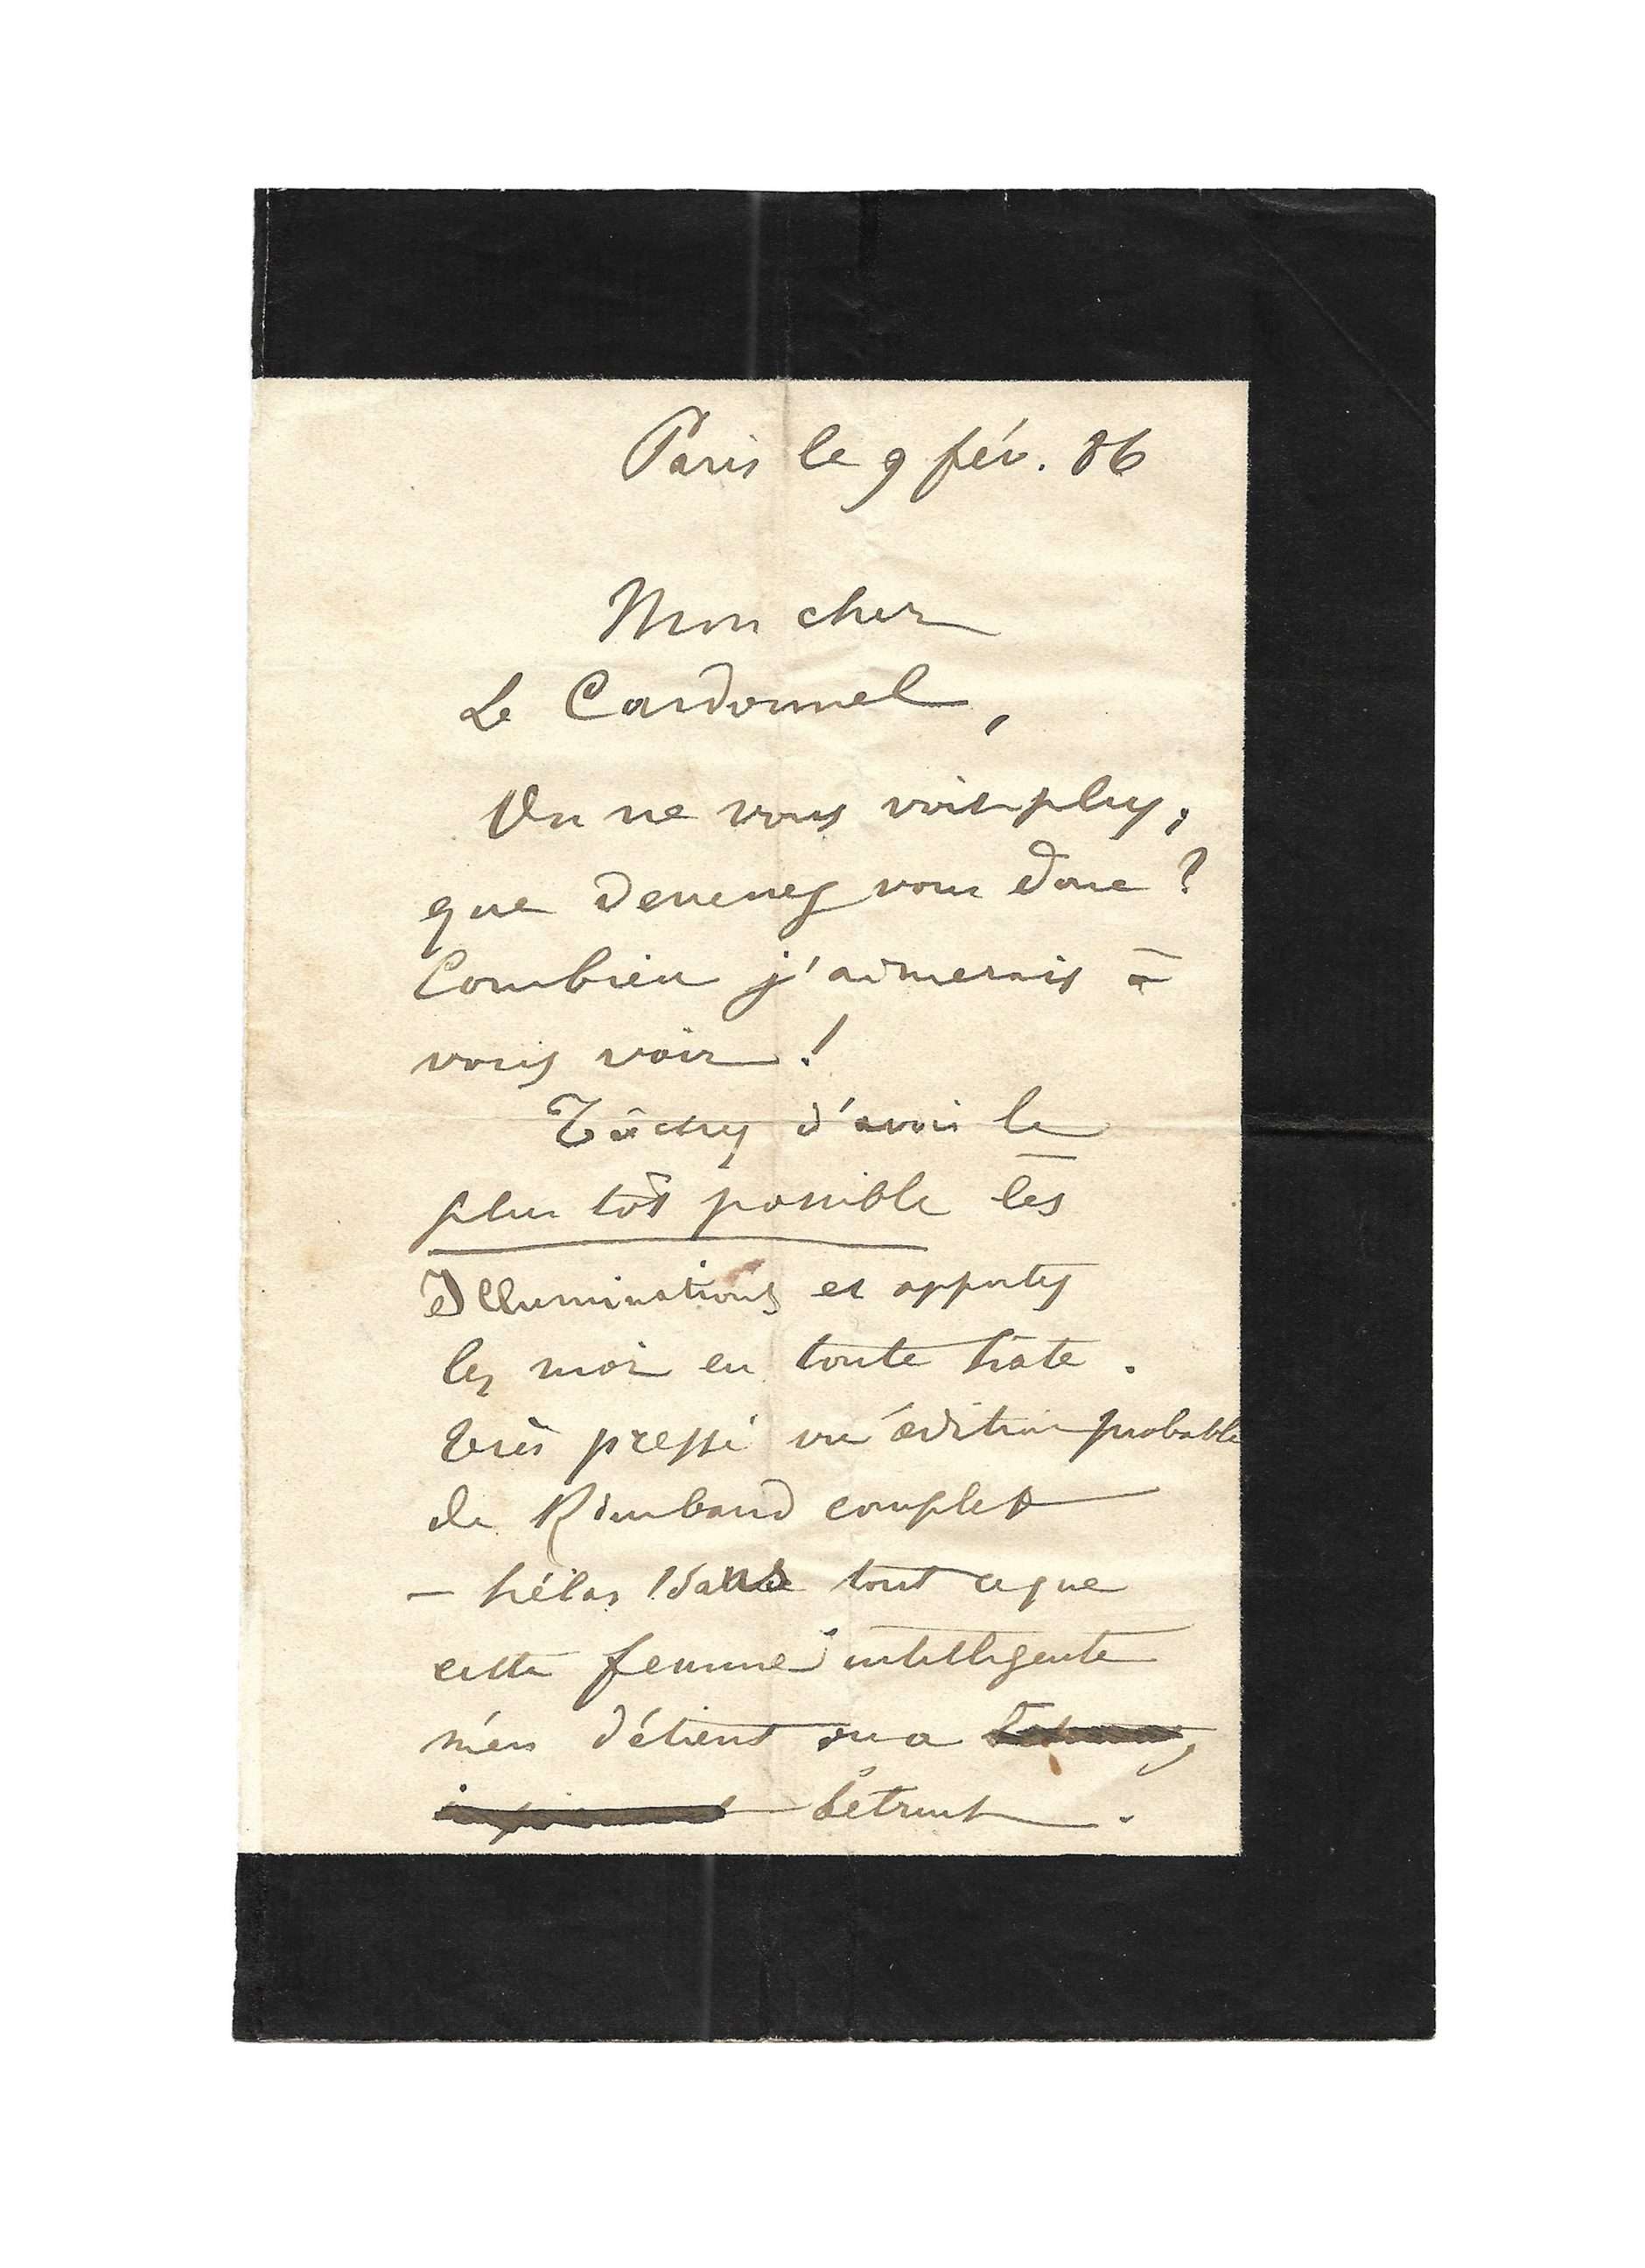 Paris le 9 fév. 86
Mon cher
Le Cardonnel,
On ne vous voit plus,
que devenez vous donc ?
Combien j'aimerais à
vous voir !
Tâchez d'avoir le
plus tôt possible les
Illuminations et apportez
les moi en toute hâte.
Très pressé vu édition probable
de Rimbaud complet
– hélas ! sauf tout ce que
cette femme intelligente
m'en détient ou a
détruit.